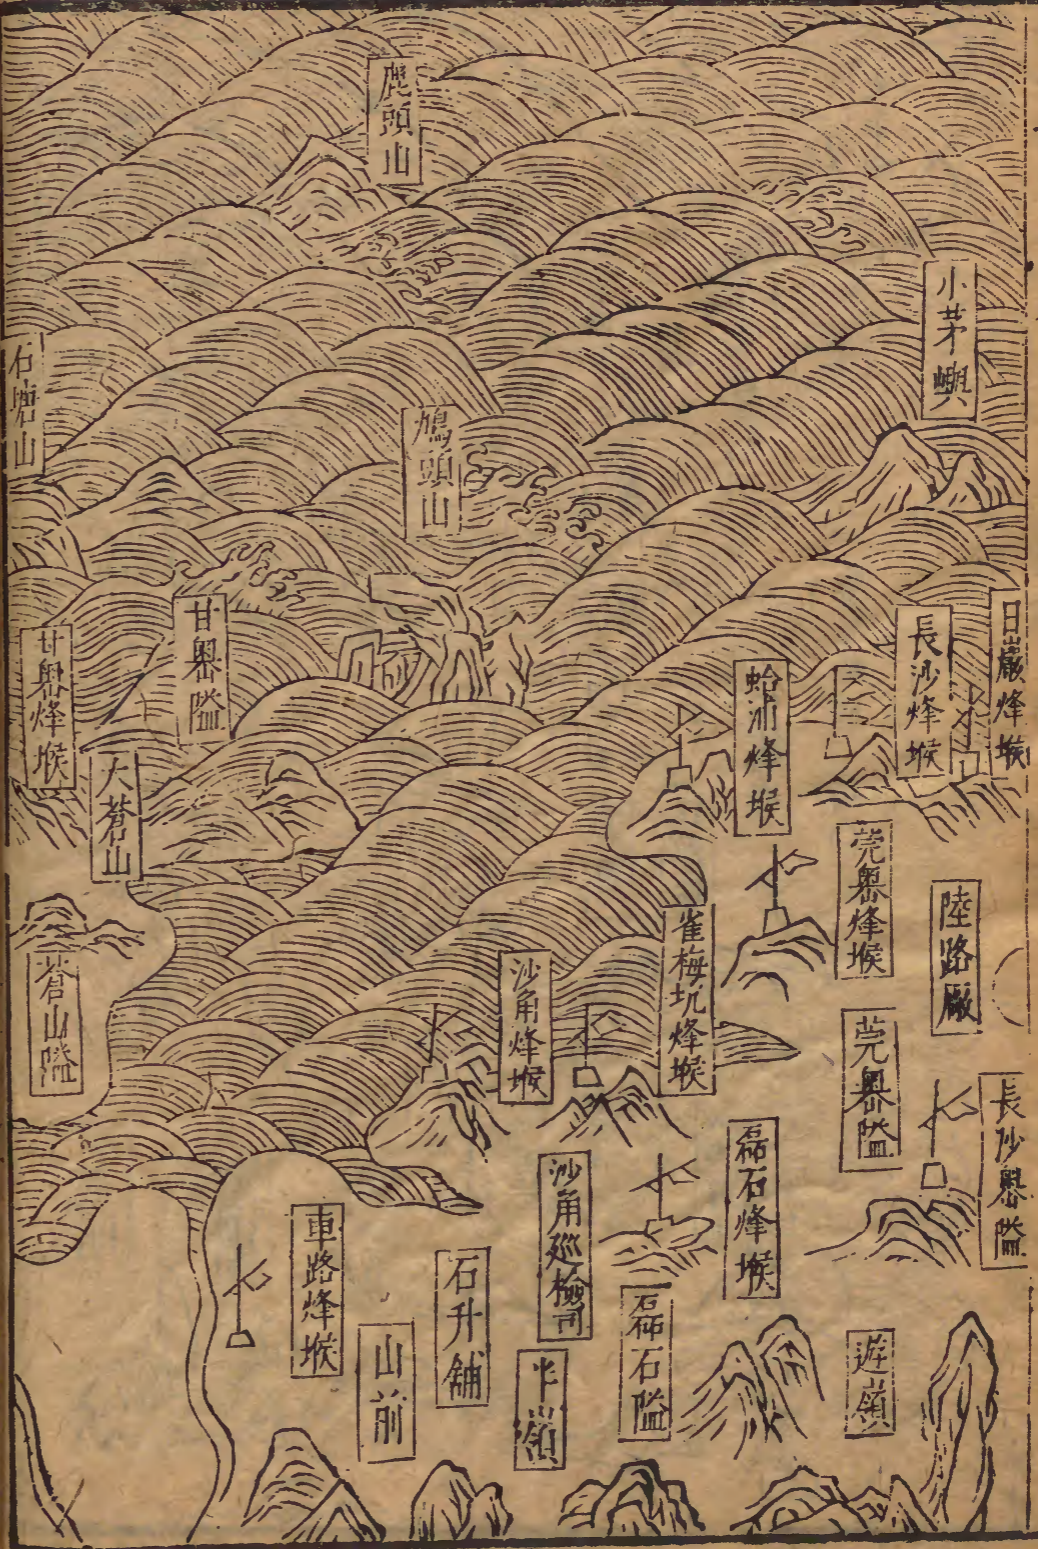 鹿頭山
小茅嶼
石塘山
鳩頭山
日巖烽堠
長沙烽堠
蛤浦烽堠
甘嶴隘
甘嶴烽堠
大蒼山
莞嶴烽堠
陸路廠
雀梅坑烽堠
沙角烽堠
蒼山隘
莞嶴隘
長沙嶴隘
磊石烽堠
沙角巡檢司
車路烽堠
石升舖
磊石隘
山前
半嶺
遊嶺